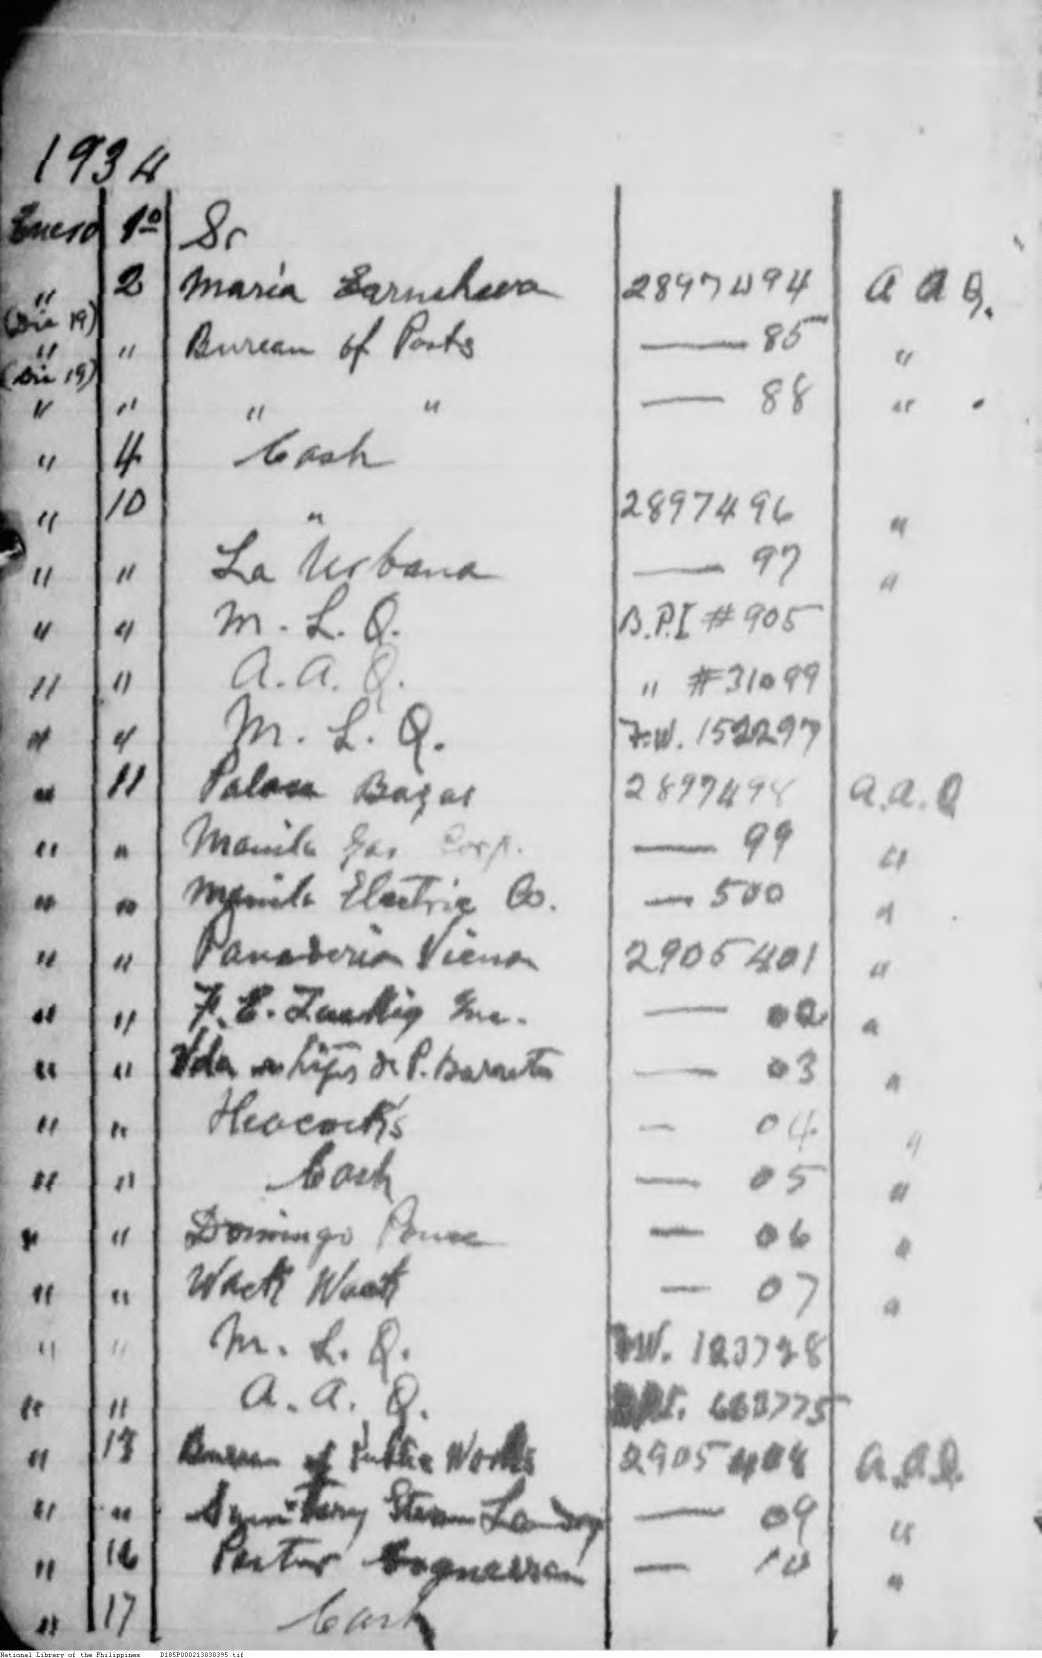 1934
Enero 1º Sr
" 2 Maria 2897494 A A Q.
(Dic 19)
" " Bureau of Posts — 85 "
(Dic 19)
" " " " — 88 "
" 4 Cash
" 10 " 2897496 "
" " La Urbana — 97 "
" " M. L. Q. B.P.I #905
" " A. A. Q. " #31099
" " M. L. Q. F.W. 152297
" 11 Bazar 2897498 A.A.Q
" " Manila Gas Corp. — 99 "
" " Manila Electric Co. — 500 "
" " Panaderia Viena 2905401 "
" " F. E. Zuellig Inc. — 02 "
" " Vda e hijos de P. Barreto — 03 "
" " Heacock's — 04 "
" " Cash — 05 "
" " Domingo Ponce — 06 "
" " Wack Wack — 07 "
" " M. L. Q. F.W. 123728
" " A. A. Q. B.P.I.
" 13 Bureau of Public Works 2905408 A.A.Q.
" " Steam — 09 "
" 16 Pastor — 10 "
" 17 Cash
National Library of the Philippines D185P000213838395.tif